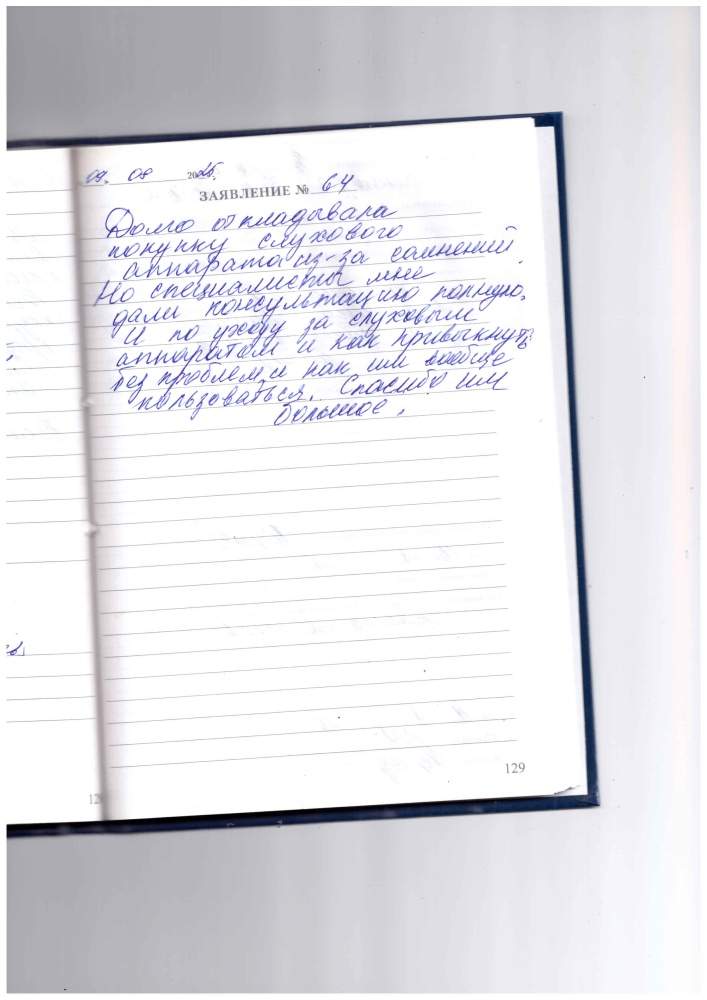 09. 09 2025.
ЗАЯВЛЕНИЕ № 64
Долго откладывала
покупку слухового
аппарата из-за сомнений.
Но специалисты мне
дали консультацию полную.
И по уходу за слуховым
аппаратам и как привыкнуть
без проблем, и как им вообще
пользоваться. Спасибо им
большое.
129